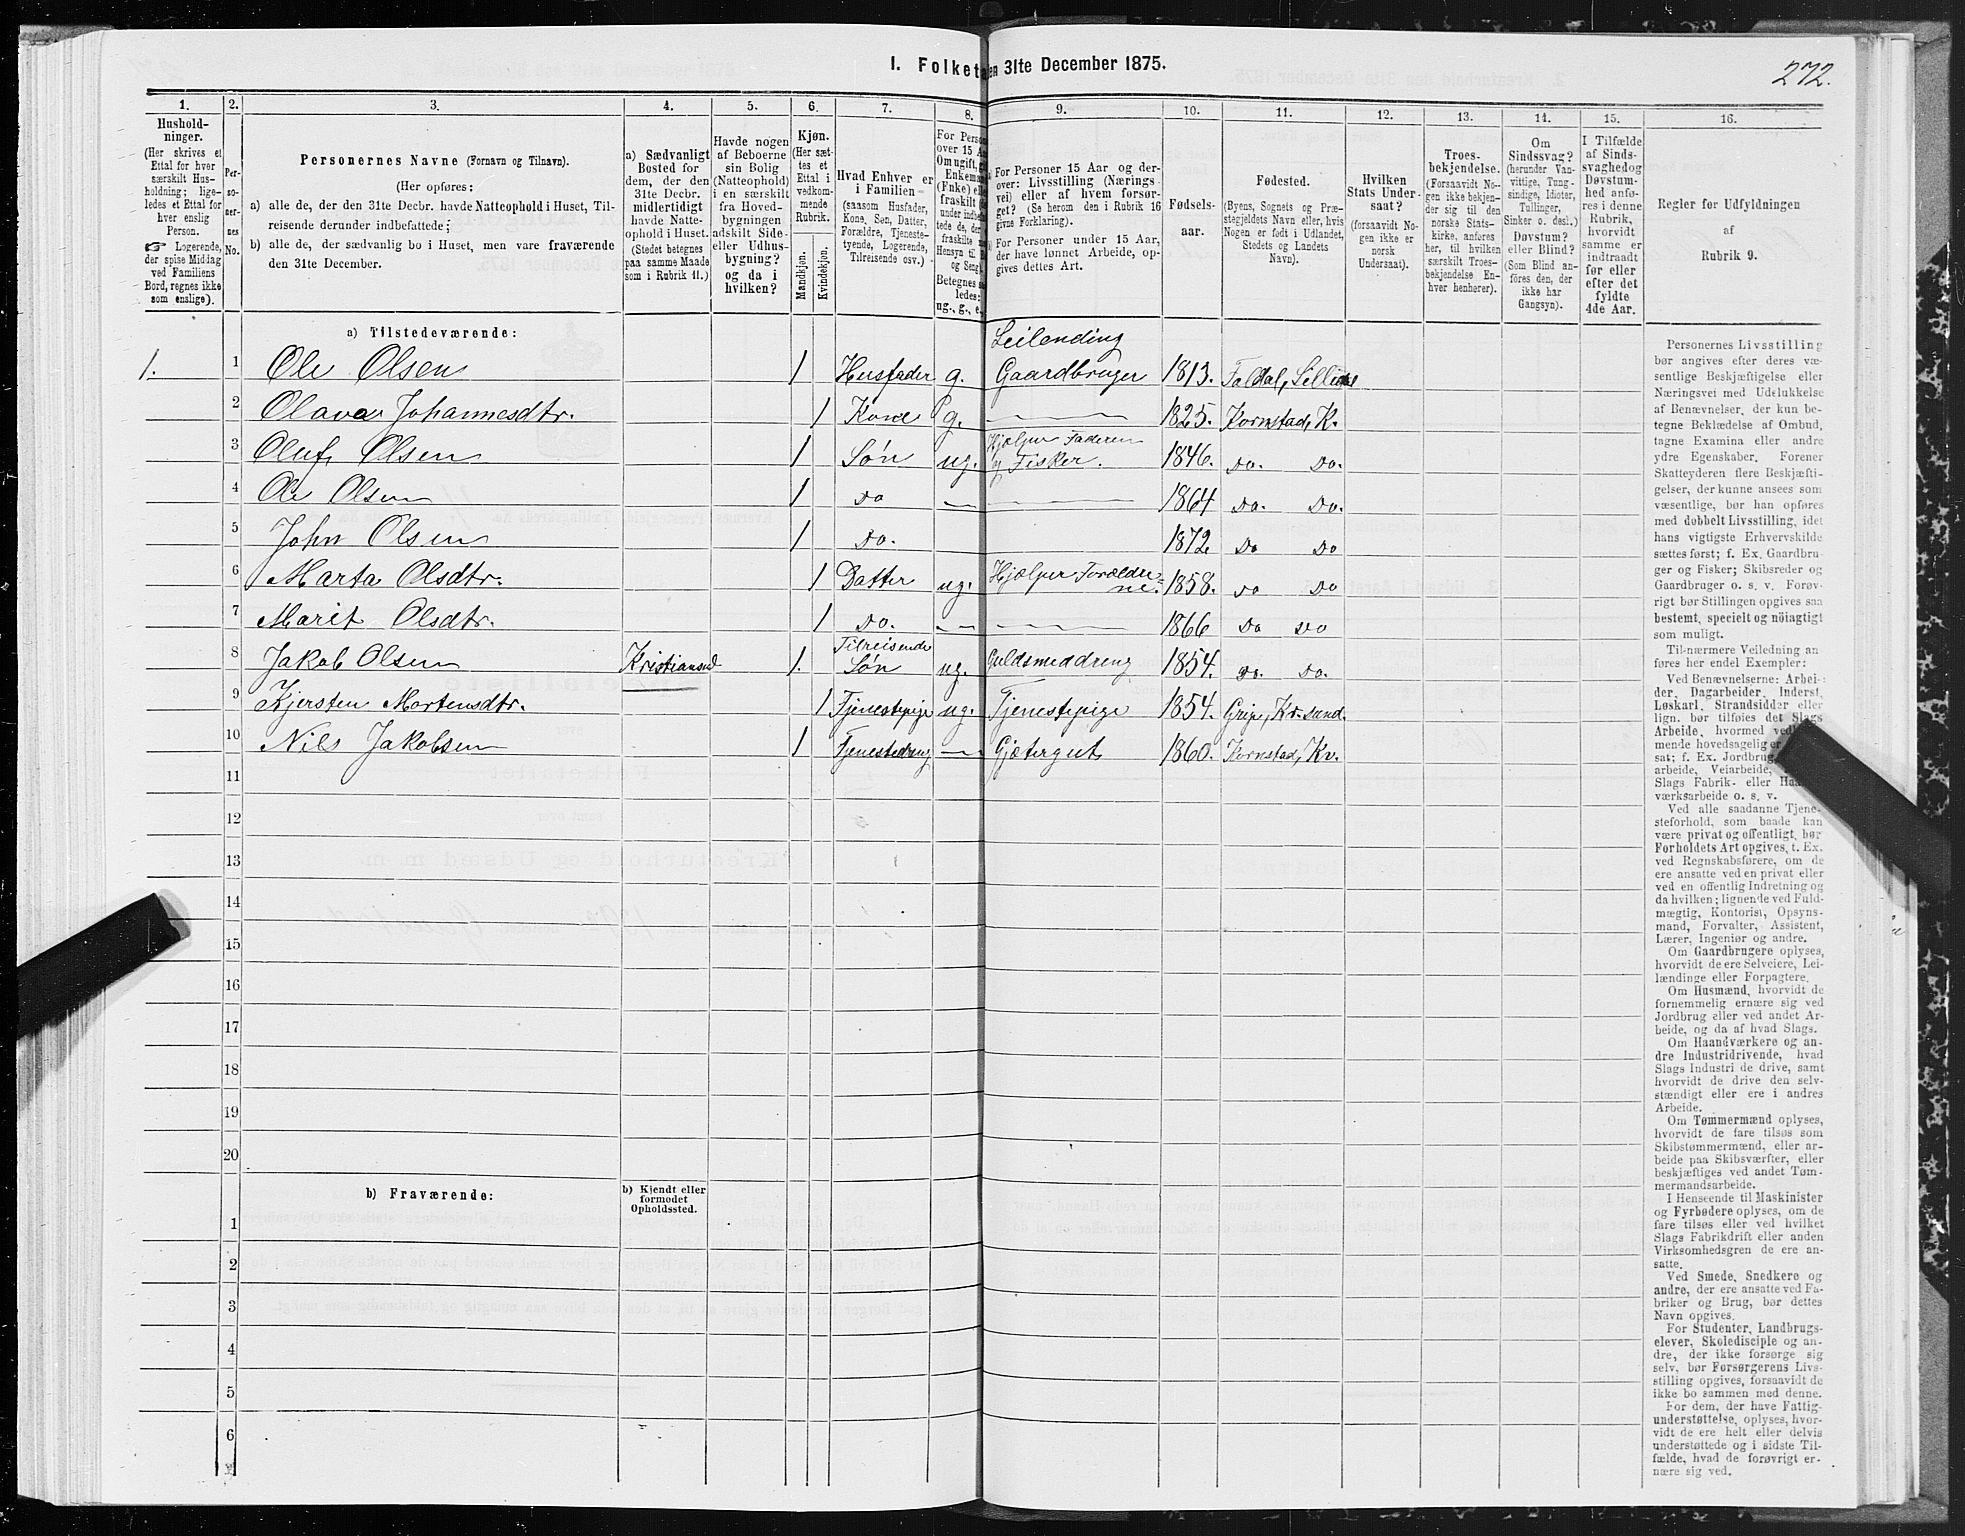 I. Folketa en 31te December 1875.
272.
1. 2. 3. 4. 5. 6. 7. 8. 9. 10. 11. 12. 13. 14. 15. 16.
Hushold-
ninger.
(Her skrives et
Ettal for hver
særskilt Hus-
holdning; lige-
ledes et Ettal for
hver enslig
Person.
☞ Logerende,
der spise Middag
ved Familiens
Bord, regnes ikke
som enslige).
Per-
so-
ner-
nes
No.
Personernes Navne (Fornavn og Tilnavn).
(Her opføres:
a) alle de, der den 31te Decbr. havde Natteophold i Huset, Til-
reisende derunder indbefattede;
b) alle de, der sædvanlig bo i Huset, men vare fraværende
den 31te December.
a) Sædvanligt
Bosted for
dem, der den
31te Decbr.
midlertidigt
havde Natte-
ophold i Huset.
(Stedet betegnes
paa samme Maade
som i Rubrik 11.)
Havde nogen
af Beboerne
sin Bolig
(Natteophold)
i en særskilt
fra Hoved-
bygningen
adskilt Side-
eller Udhus-
bygning?
og da i
hvilken?
Kjøn.
(Her sæt-
tes et
Ettal i
vedkom-
mende
Rubrik.
Mandkjøn.
Kvindekjøn.
Hvad Enhver er
i Familien
(saasom Husfader,
Kone, Søn, Datter,
Forældre, Tjeneste-
tyende, Logerende,
Tilreisende osv.)
For Perso
over 15 Aa
Om ugift, g
Enkema
(Fnke) ell
fraskilt
under indbe
tede de, der
fraskilte
Hensyn til B
og Seng
Betegnes s
ledes:
ug., g., e.
For Personer 15 Aar og der-
over: Livsstilling (Nærings-
vei) eller af hvem forsør-
get? (Se herom den i Rubrik 16
givne Forklaring).
For Personer under 15 Aar,
der have lønnet Arbeide, op-
gives dettes Art.
Fødsels-
aar.
Fødested.
(Byens, Sognets og Præ-
stegjeldets Navn eller, hvis
Nogen er født i Udlandet,
Stedets og Landets
Navn).
Hvilken
Stats Under-
saat?
(forsaavidt No-
gen ikke er
norsk
Undersaat).
Troes-
bekjendelse.
(Forsaavidt No-
gen ikke bekjen-
der sig til den
norske Stats-
kirke, anføres
her, til hvilken
særskilt Troes-
bekjendelse En-
hver henhører).
Om
Sindssvag?
(herunder Van-
vittige, Tung-
sindige, Idioter,
Tullinger,
Sinker o. desl.)
Døvstum?
eller Blind?
(Som Blind an-
føres den, der
ikke har
Gangsyn).
I Tilfælde
af Sinds-
svaghed og
Døvstum-
hed anfø-
res i denne
Rubrik,
hvorvidt
samme er
indtraadt
før eller
efter det
fyldte
4de Aar.
Regler for Udfyldningen
af
Rubrik 9.
a) Tilstedeværende:
Leilending
1. 1 Ole Olsen 1 Husfader g. Gaardbruger 1813. Foldal, Lille
2 Olava Johannesdtr. 1 Kone g. 1825. Kornstad, K.
Hjælper Faderen
3 Oluf Olsen 1 Søn ug. og Fisker. 1846. Do. Do.
4 Ole Olsen 1 Do 1864 Do. Do.
5 John Olsen 1 Do. 1872 Do Do
6 Marta Olsdtr. 1 Datter ug. Hjælper Forældre-
ne. 1858. Do Do
7 Marit Olsdtr. 1 Do. 1866 Do Do
Tilreisende
8 Jakob Olsen Kristiansund 1. Søn ug. Guldsmeddreng 1854. Do. Do.
9 Kjersten Mortensdtr. 1 Tjenestepige ug. Tjenestepige 1854. Grip, Kr.sund.
10 Nils Jakobsen 1 Tjenestedreng Gjætergut 1860. Kornstad, Kv.
11
12
13
14
15
16
17
18
19
20
b) Fraværende:
b) Kjendt eller
formodet
Opholdssted.
1
2
3
4
5
6
Personernes Livsstilling
bør angives efter deres væ-
sentlige Beskjæftigelse eller
Næringsvei med Udelukkelse
af Benævnelser, der kun be-
tegne Beklædelse af Ombud,
tagne Examina eller andre
ydre Egenskaber. Forener
Skatteyderen flere Beskjæfti-
gelser, der kunne ansees som
væsentlige, bør han opføres
med dobbelt Livsstilling, idet
hans vigtigste Erhvervskilde
sættes først; f. Ex. Gaardbru-
ger og Fisker; Skibsreder og
Gaardbruger o. s. v. Forøv-
rigt bør Stillingen opgives saa
bestemt, specielt og nøiagtigt
som muligt.
Til nærmere Veiledning an-
føres her endel Exempler:
Ved Benævnelserne: Arbei-
der, Dagarbeider, Inderst,
Løskarl, Strandsidder eller
lign. bør tilføies det Slags
Arbeide, hvormed ved
mende hovedsagelig er
sat; f. Ex. Jordbrug
arbeide, Veiarbeide,
Slags Fabrik- eller Haa
værksarbeide o. s. v.
Ved alle saadanne Tjene-
steforhold, som baade kan
være privat og offentligt, bør
Forholdets Art opgives, t. Ex.
ved Regnskabsførere, om de
ere ansatte ved en privat eller
ved en offentlig Indretning og
da hvilken; lignende ved Fuld-
mægtig, Kontorist, Opsyns-
mand, Forvalter, Assistent,
Lærer, Ingeniør og andre.
Om Gaardbrugere oplyses,
hvorvidt de ere Selveiere, Lei-
lændinge eller Forpagtere.
Om Husmænd, hvorvidt de
fornemmelig ernære sig ved
Jordbrug eller ved andet Ar-
beide, og da af hvad Slags.
Om Haandværkere og an-
dre Industridrivende, hvad
Slags Industri de drive, samt
hvorvidt de drive den selv-
stændigt eller ere i andres
Arbeide.
Om Tømmermænd oplyses,
hvorvidt de fare tilsøs som
Skibstømmermænd, eller ar-
beide paa Skibsværfter, eller
beskjæftiges ved andet Tøm-
mermandsarbeide.
I Henseende til Maskinister
og Fyrbødere oplyses, om de
fare tilsøs eller ved hvilket
Slags Fabrikdrift eller anden
Virksomhedsgren de ere an-
satte.
Ved Smede, Snedkere og
andre, der ere ansatte ved Fa-
briker og Brug, bør dettes
Navn opgives.
For Studenter, Landbrugs-
elever, Skoledisciple og an-
dre, der ikke forsørge sig
selv, bør Forsørgerens Livs-
stilling opgives, forsaavidt de
ikke bo sammen med denne.
For dem, der have Fattig-
understøttelse, oplyses, hvor-
vidt de ere helt eller delvis
understøttede og i sidste Til-
fælde, hvad de forøvrigt er-
nære sig ved.